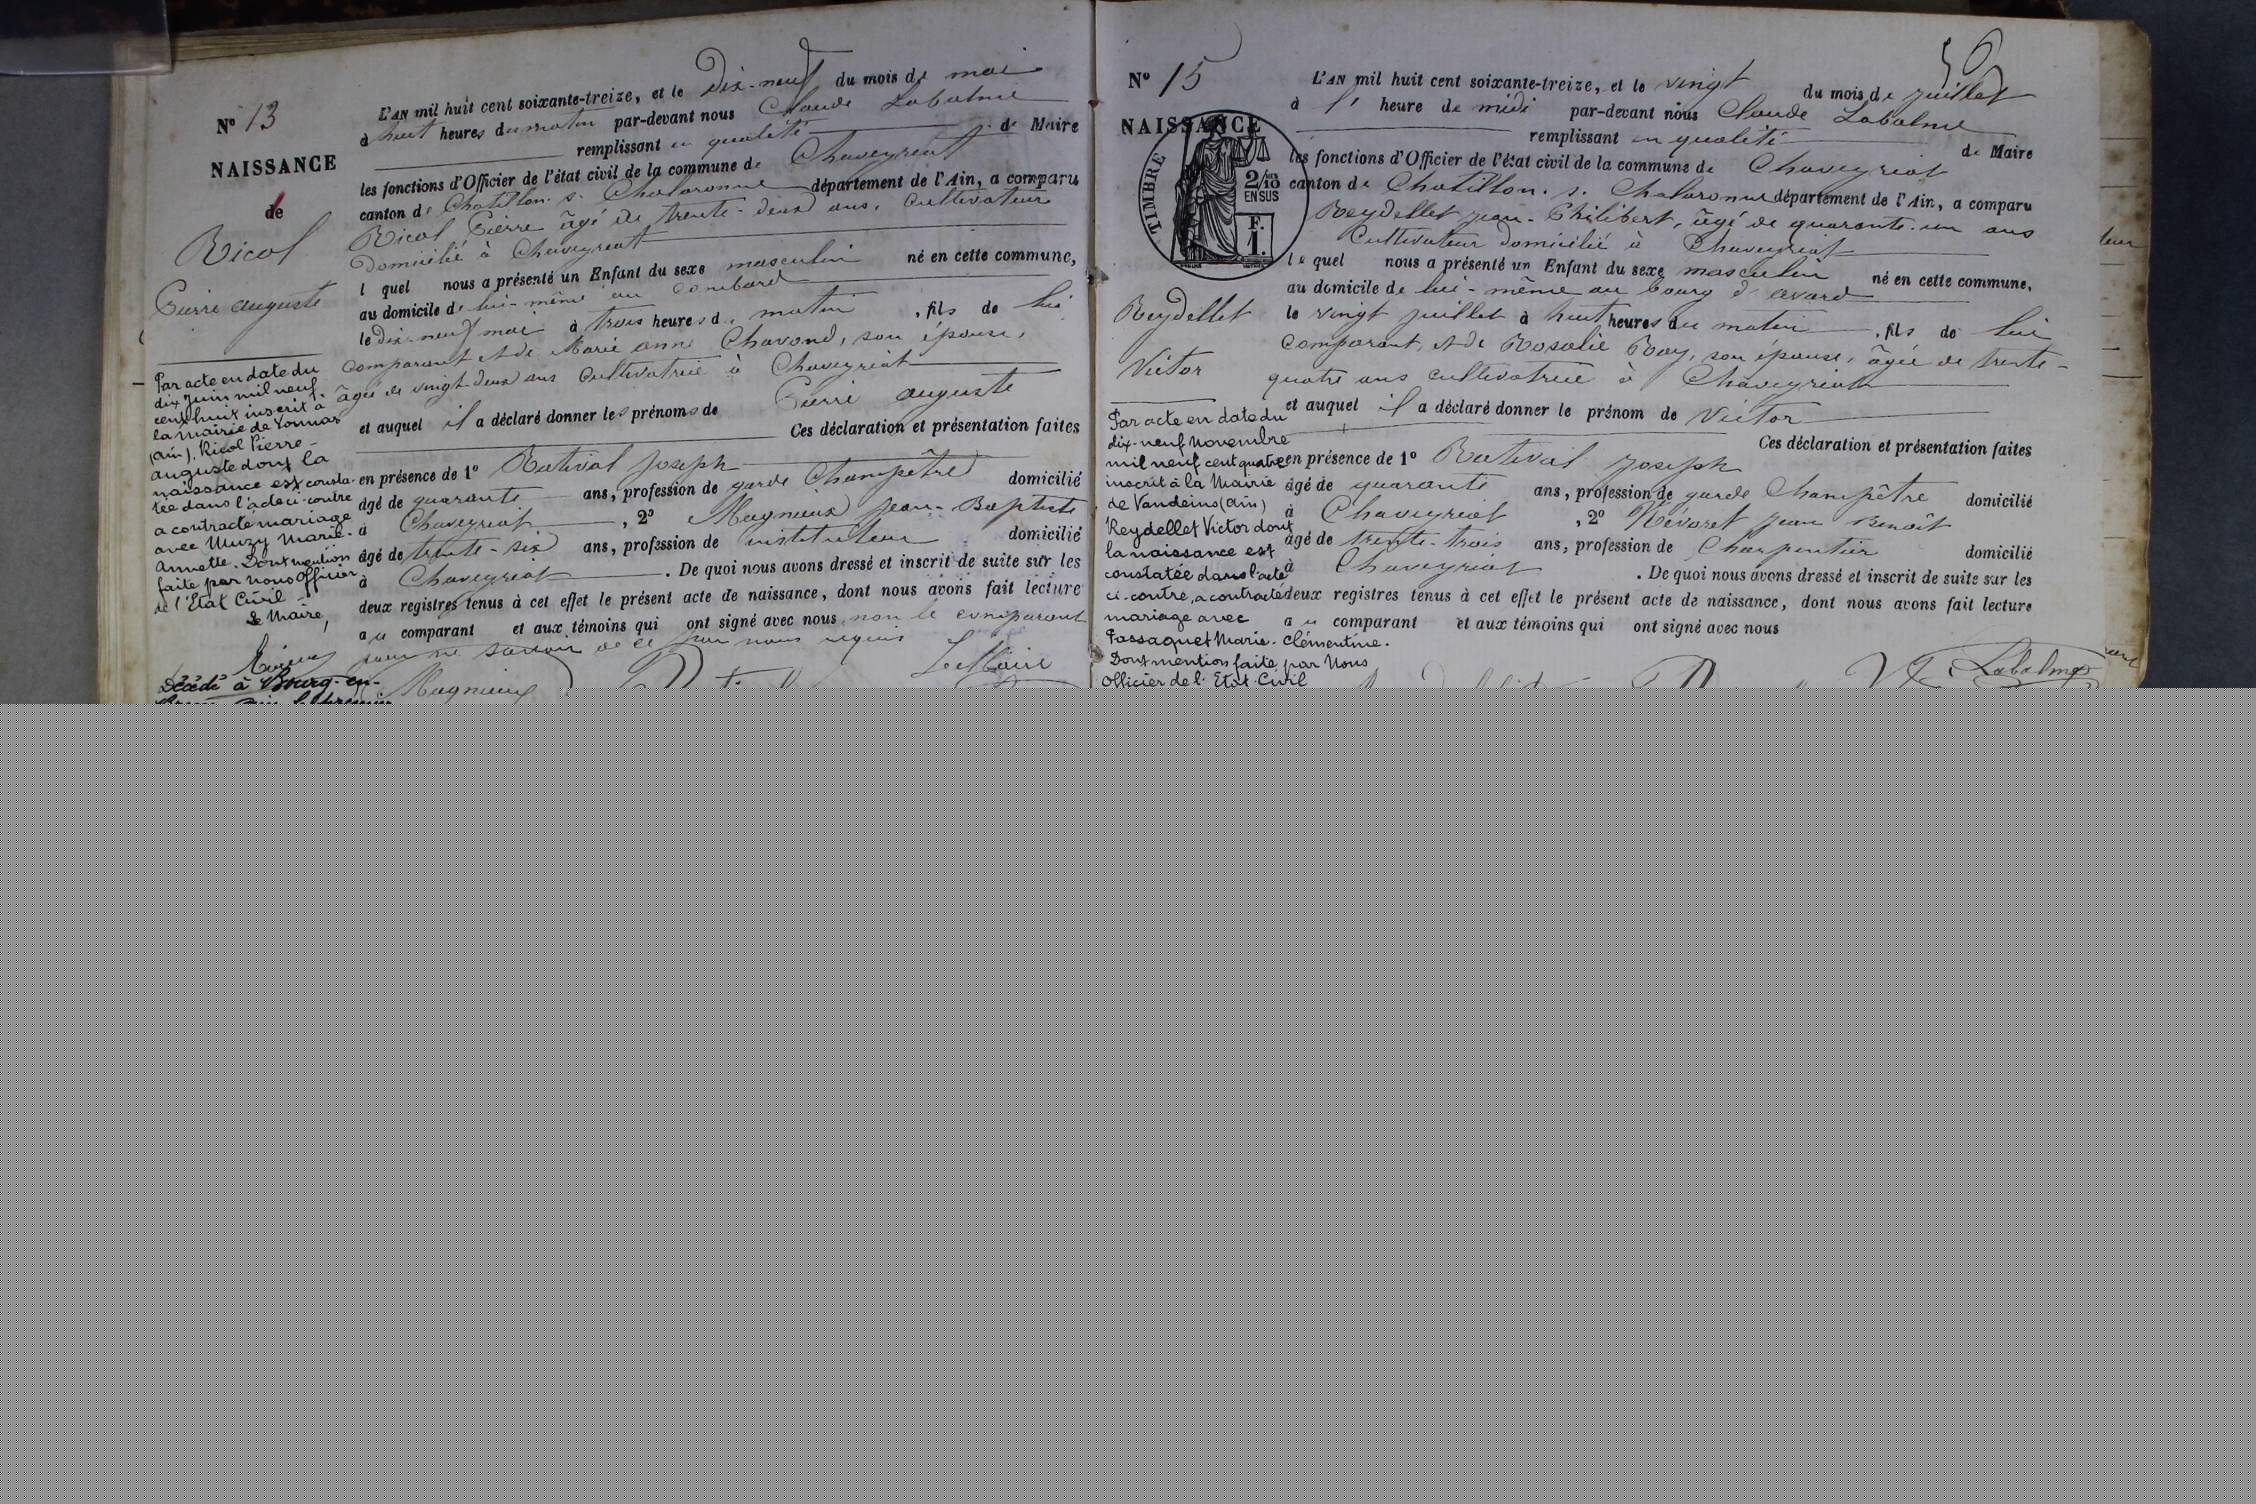 N° 13
NAISSANCE
de
Ricol
Pierre auguste
Par acte en date du
dix Juin mil neuf
cent huit inscrit à
la Mairie de Vonnas
(ain), Ricol Pierre-
auguste dont la
naissance est consta-
tée dans l'acte ci-contre
a contracté mariage
avec Muzy Marie-
Annette. Dont mention
faite par nous Officier
de l'Etat Civil
Le Maire,
Décédé à Bourg-en-
L'AN mil huit cent soixante-treize, et le Dix-neuf du mois de mai
à huit heures du matin par-devant nous Claude Labalme
remplissant en qualité de Maire
les fonctions d'Officier de l'état civil de la commune de Chaveyriat
canton de Chatillon s. Chalaronne département de l'Ain, a comparu
Ricol Pierre âgé de trente-deux ans, Cultivateur
Domicilié à Chaveyriat
lequel nous a présenté un Enfant du sexe masculin né en cette commune,
au domicile de lui-même au
le dix-neuf mai à trois heures du matin, fils de lui
comparant et de Marie anne Chavond, son épouse,
âgée de vingt-deux ans Cultivatrice à Chaveyriat
et auquel il a déclaré donner les prénoms de Pierre auguste
Ces déclaration et présentation faites
en présence de 1° Rativat Joseph
âgé de quarante ans, profession de garde Champêtre domicilié
à Chaveyriat, 2° Magnieux Jean-Baptiste
âgé de trente-six ans, profession de instituteur domicilié
à Chaveyriat. De quoi nous avons dressé et inscrit de suite sur les
deux registres tenus à cet effet le présent acte de naissance, dont nous avons fait lecture
au comparant et aux témoins qui ont signé avec nous non le comparant
pour ne savoir de ce par nous requis
Le Maire
Magnieux
56
N° 15
NAISSANCE
TIMBRE
2/10
EN SUS
F.
1.
Reydellet
Victor
Par acte en date du
dix-neuf Novembre
mil neuf cent quatre
inscrit à la Mairie
de Vandeins (ain)
Reydellet Victor dont
la naissance est
constatée dans l'acte
ci-contre, a contracté
mariage avec
Passaquet Marie-Clémentine.
Dont mention faite par Nous
Officier de l'Etat-Civil
L'AN mil huit cent soixante-treize, et le vingt du mois de juillet
à l' heure de midi par-devant nous Claude Labalme
remplissant en qualité de Maire
les fonctions d'Officier de l'état civil de la commune de Chaveyriat
canton de Chatillon. s. Chalaronne département de l'Ain, a comparu
Reydellet Jean-Philibert, âgé de quarante-un ans
Cultivateur domicilié à Chaveyriat
lequel nous a présenté un Enfant du sexe masculin né en cette commune,
au domicile de lui-même au bourg d'avard
le vingt juillet à huit heures du matin, fils de lui
comparant, et de Rosalie Ray, son épouse, âgée de trente-
quatre ans cultivatrice à Chaveyriat
et auquel il a déclaré donner le prénom de Victor
Ces déclaration et présentation faites
en présence de 1° Rativat Joseph
âgé de quarante ans, profession de garde Champêtre domicilié
à Chaveyriat, 2° Névoret Jean Benoît
âgé de trente-trois ans, profession de Charpentier domicilié
à Chaveyriat. De quoi nous avons dressé et inscrit de suite sur les
deux registres tenus à cet effet le présent acte de naissance, dont nous avons fait lecture
au comparant et aux témoins qui ont signé avec nous
Labalme